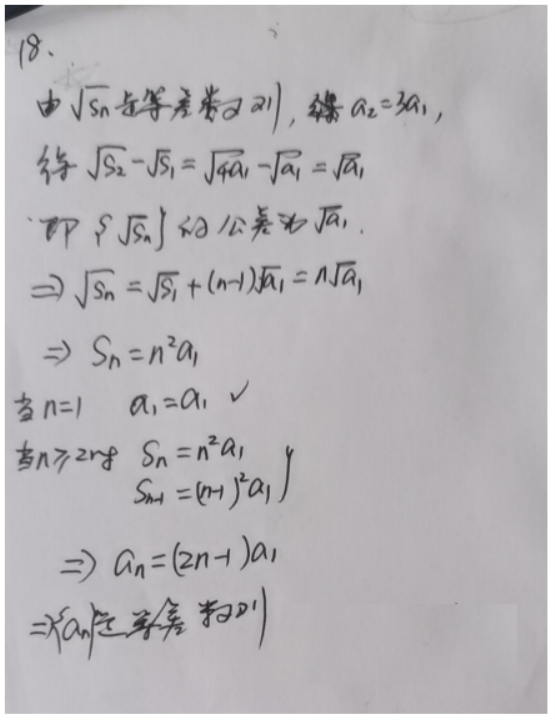 18.
由√Sn是等差数列, a₂=3a₁,
得 √S₂-√S₁=√4a₁-√a₁=√a₁
即{√Sn}的公差为√a₁.
⇒√Sn=√S₁+(n-1)√a₁=n√a₁
⇒ Sn=n²a₁
当n=1 a₁=a₁ ✓
当n≥2时 Sn=n²a₁
Sn-1=(n-1)²a₁ }
⇒ an=(2n-1)a₁
⇒{an}是等差数列